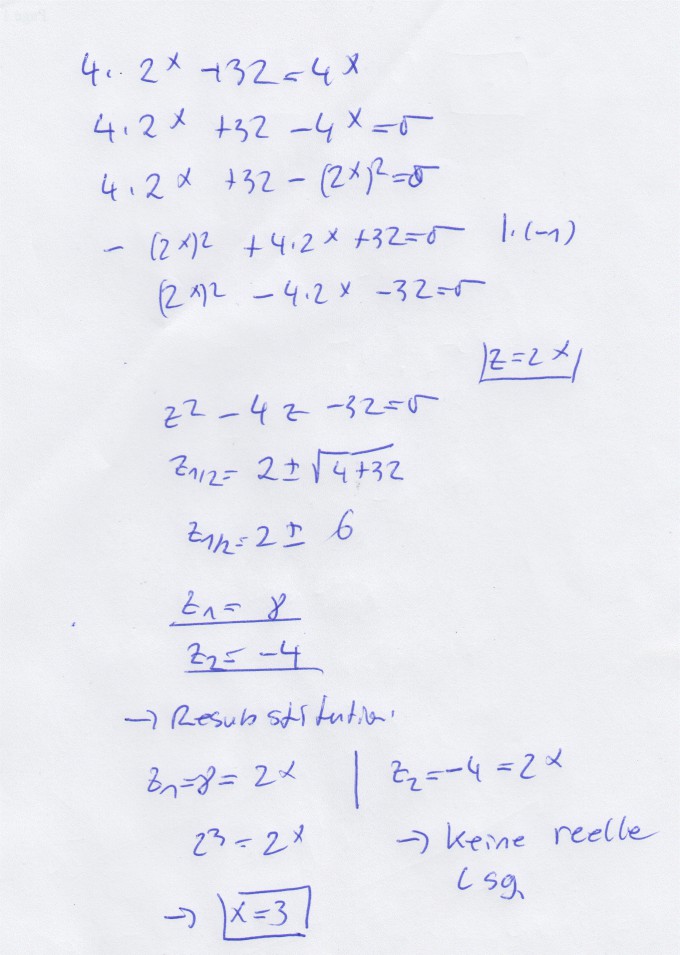 4 · 2^x + 32 = 4^x
4 · 2^x + 32 - 4^x = 0
4 · 2^x + 32 - (2^x)^2 = 0
- (2^x)^2 + 4 · 2^x + 32 = 0 | · (-1)
(2^x)^2 - 4 · 2^x - 32 = 0
z = 2^x
z^2 - 4z - 32 = 0
z_1/2 = 2 ± √(4+32)
z_1/2 = 2 ± 6
z_1 = 8
z_2 = -4
→ Resubstitution:
z_1 = 8 = 2^x | z_2 = -4 = 2^x
2^3 = 2^x → keine reelle
Lsg.
→ x = 3